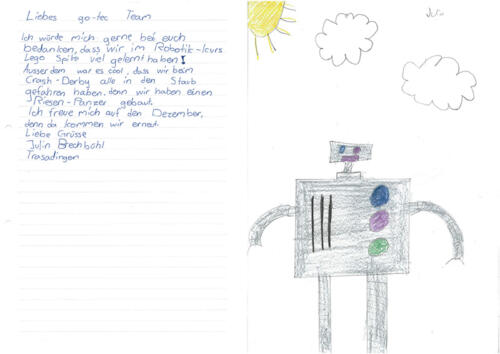 Liebes go-tec Team
Ich würde mich gerne bei euch
bedanken, dass wir im Robotik-kurs
Lego Spike viel gelernt haben!
Ausserdem war es cool, dass wir beim
Crash-Derby alle in den Staub
gefahren haben. denn wir haben einen
Riesen-Panzer gebaut.
Ich freue mich auf den Dezember,
denn da kommen wir erneut.
Liebe Grüsse
Julin Brechbühl
Trasadingen